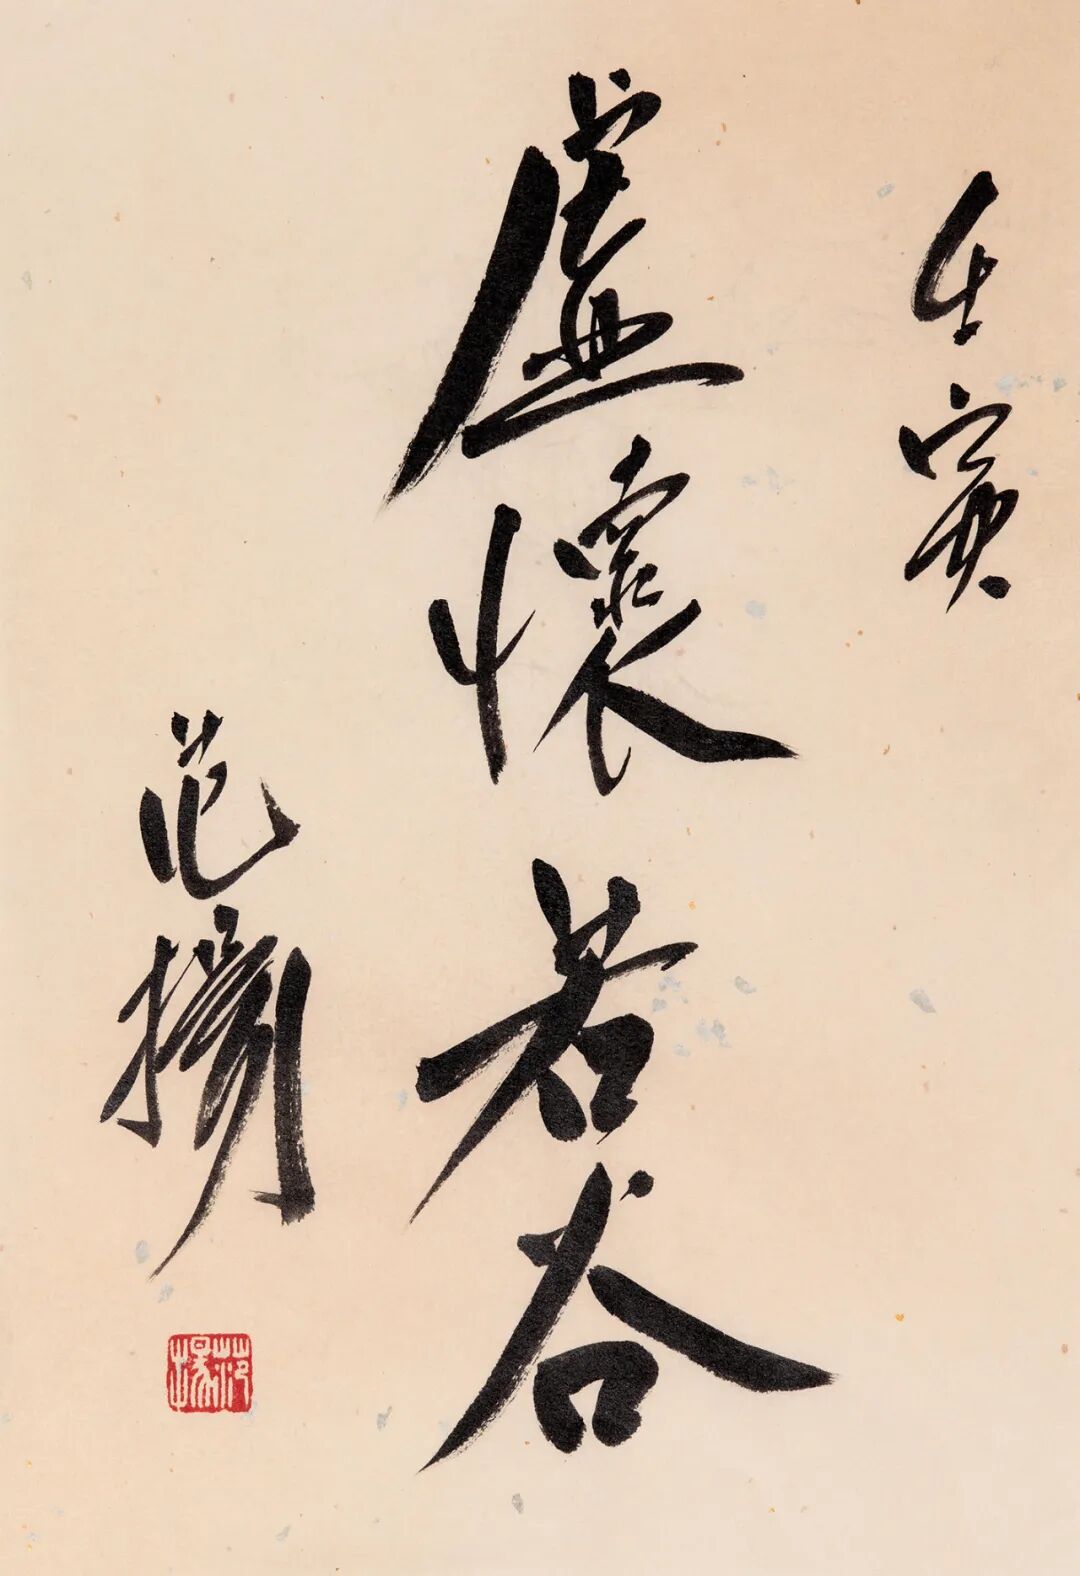 壬寅
虚懷若谷
范揚
范揚